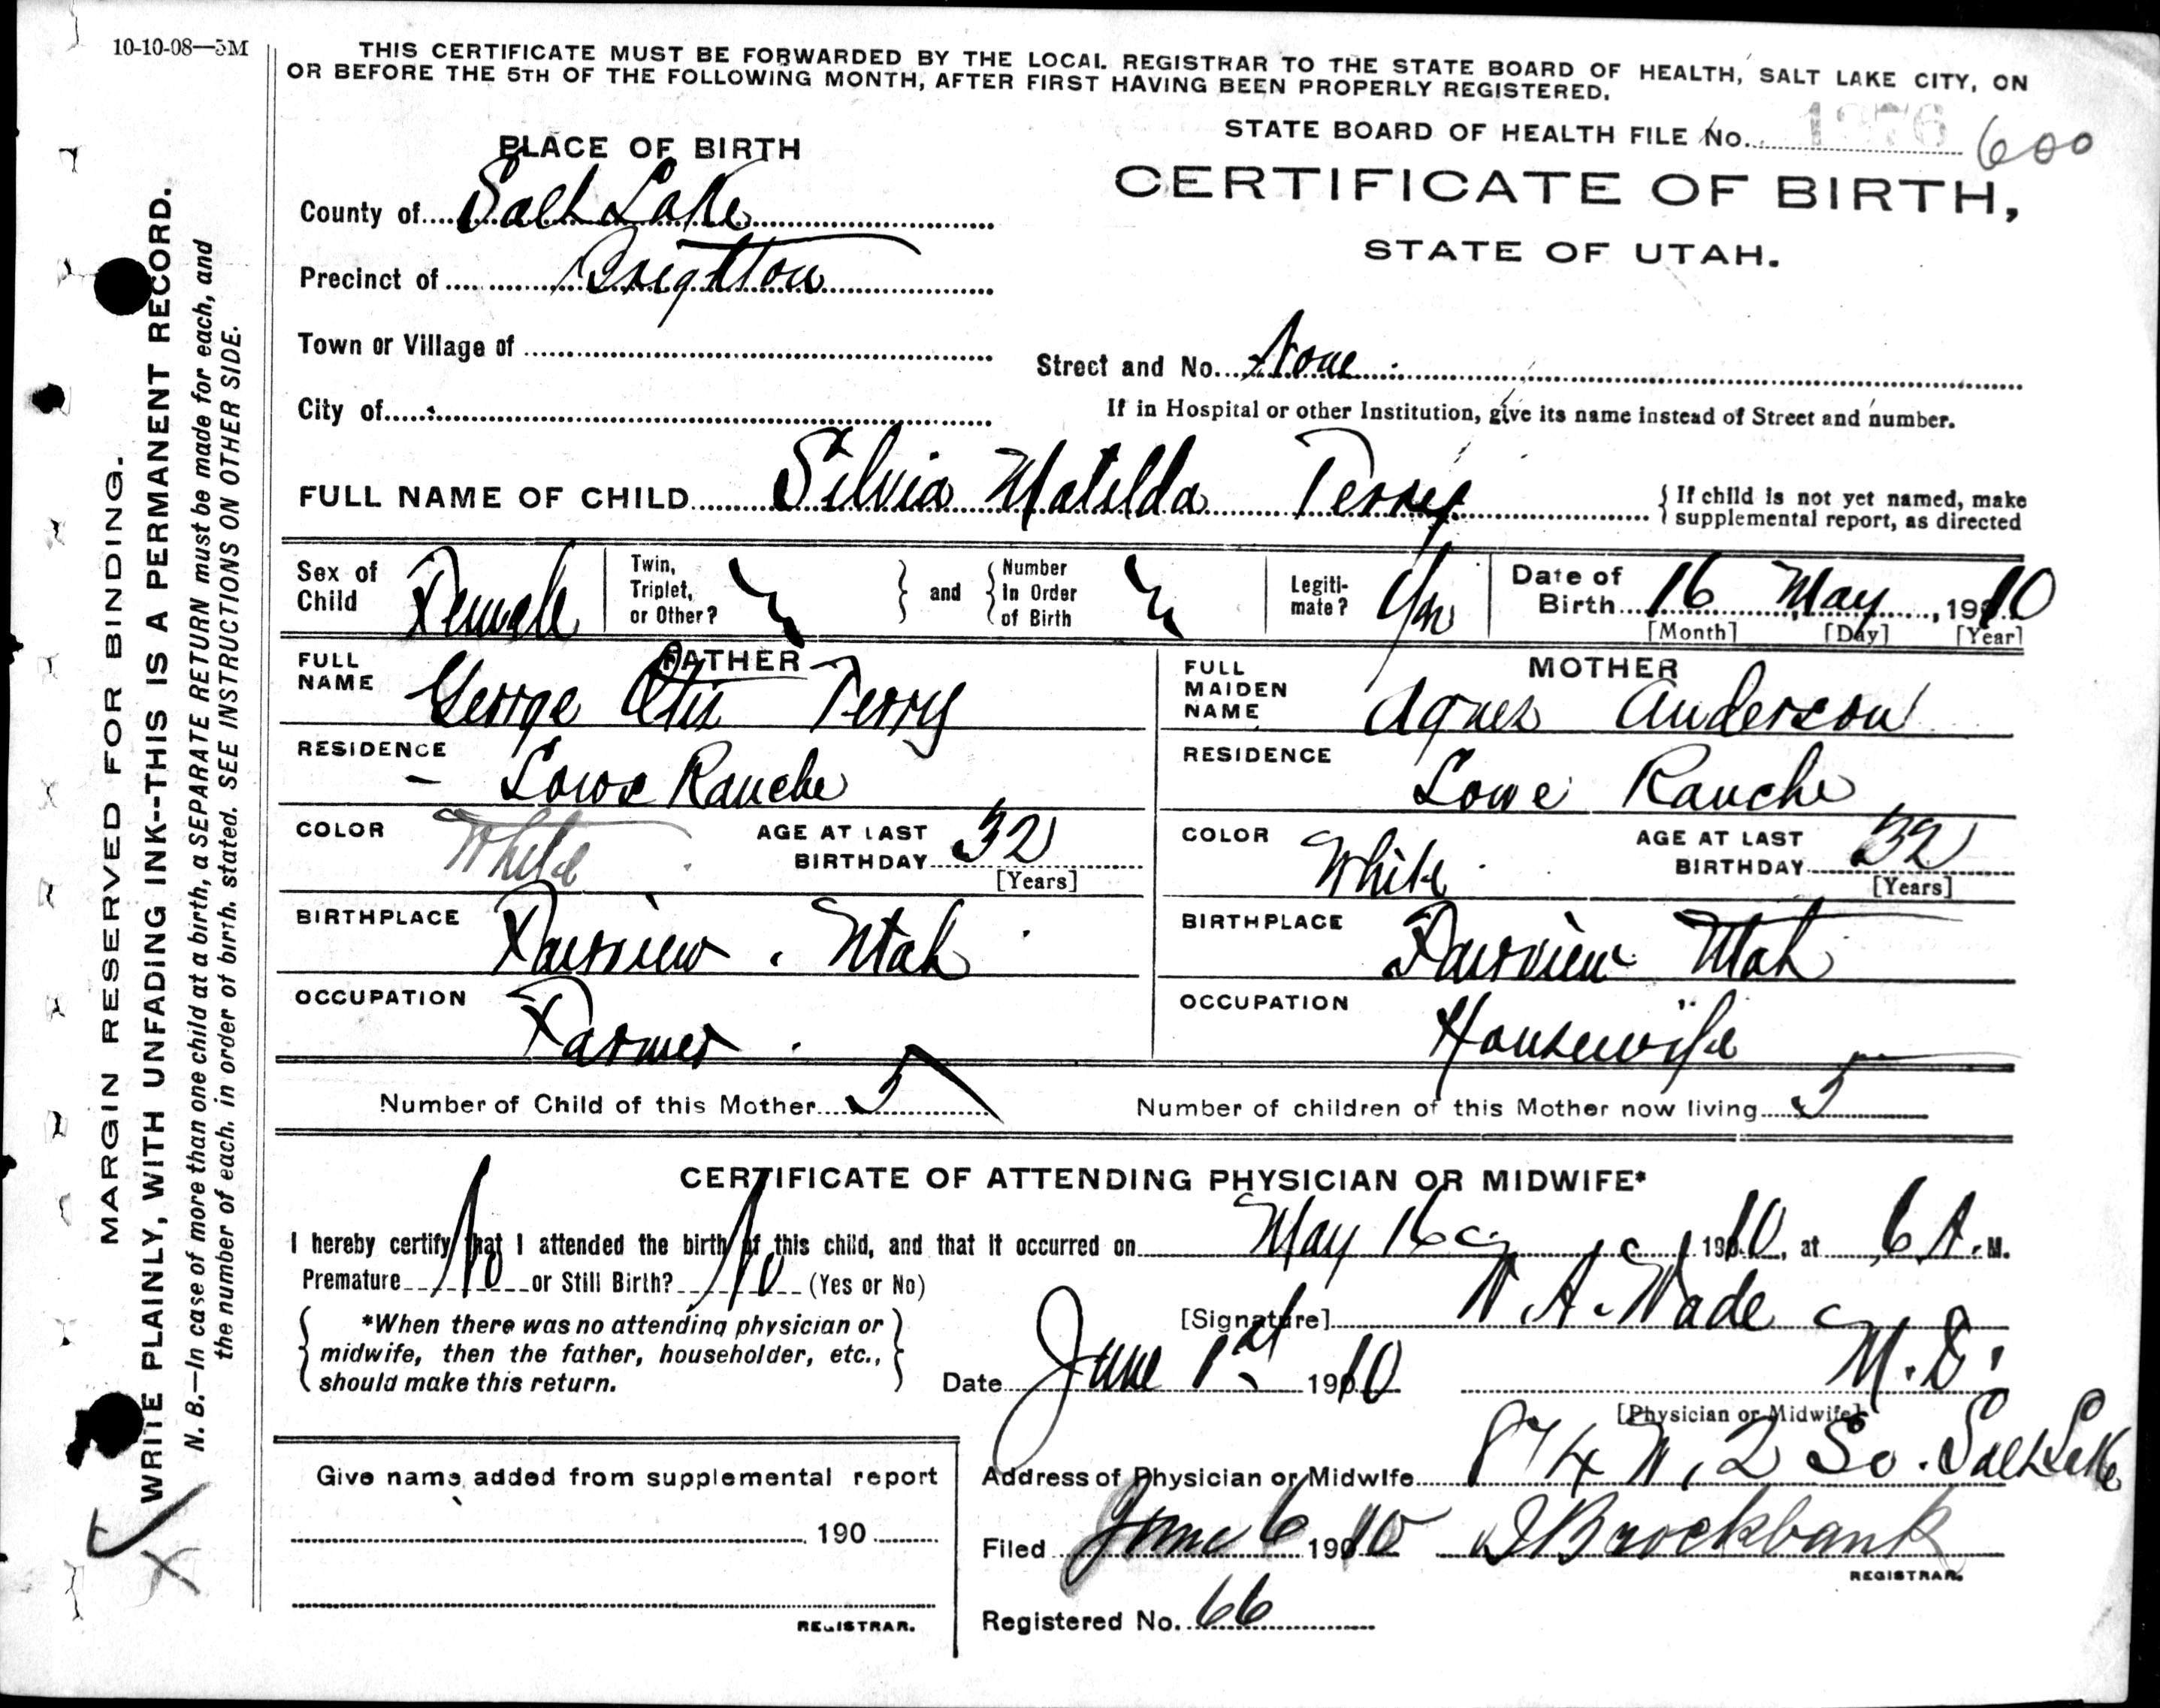 10-10-08—5M
THIS CERTIFICATE MUST BE FORWARDED BY THE LOCAL REGISTRAR TO THE STATE BOARD OF HEALTH, SALT LAKE CITY, ON
OR BEFORE THE 5TH OF THE FOLLOWING MONTH, AFTER FIRST HAVING BEEN PROPERLY REGISTERED.
STATE BOARD OF HEALTH FILE No. 1376 600
PLACE OF BIRTH
CERTIFICATE OF BIRTH,
STATE OF UTAH.
County of Salt Lake
Precinct of Brighton
Town or Village of
Street and No. None
City of
If in Hospital or other Institution, give its name instead of Street and number.
FULL NAME OF CHILD Silvia Matilda Terry
{ If child is not yet named, make
supplemental report, as directed
Sex of Child Female
Twin, Triplet, or Other?
and
Number In Order of Birth
Legiti-mate? Yes
Date of Birth 16 May, 1910
[Month] [Day] [Year]
FATHER
FULL NAME George Otis Terry
RESIDENCE - Lowe Ranche
COLOR White
AGE AT LAST BIRTHDAY 32
[Years]
BIRTHPLACE Fairview. Utah
OCCUPATION Farmer.
MOTHER
FULL MAIDEN NAME Agnes Anderson
RESIDENCE Lowe Ranche
COLOR White
AGE AT LAST BIRTHDAY 32
[Years]
BIRTHPLACE Fairview Utah
OCCUPATION Housewife
Number of Child of this Mother 5
Number of children of this Mother now living 5
CERTIFICATE OF ATTENDING PHYSICIAN OR MIDWIFE*
I hereby certify that I attended the birth of this child, and that it occurred on May 16 1910, at 6 A. M.
Premature No or Still Birth? No (Yes or No)
*When there was no attending physician or
midwife, then the father, householder, etc.,
should make this return.
[Signature] W. A. Wade
M.D.
[Physician or Midwife]
Date June 1st 1910
Address of Physician or Midwife 874 W. 2 So. Salt Lake
Filed June 6 1910 Brockbank
REGISTRAR.
Registered No. 66
Give name added from supplemental report
190
REGISTRAR.
MARGIN RESERVED FOR BINDING.
WRITE PLAINLY, WITH UNFADING INK--THIS IS A PERMANENT RECORD.
N. B.—In case of more than one child at a birth, a SEPARATE RETURN must be made for each, and
the number of each, in order of birth, stated. SEE INSTRUCTIONS ON OTHER SIDE.